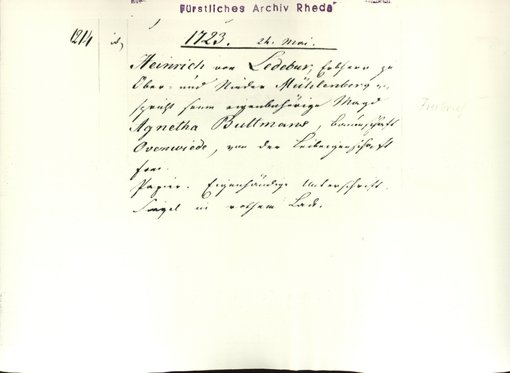 Fürstliches Archiv Rheda
1214
1723. 24. Mai.
Heinrich von Ledebur, Erbherr zu
Ober- und Nieder Mühlenberg
spricht seine eigenbehörige Magd
Agnetha Bultmans, Bauerschaft
Ovenwiede, von der Leibeigenschaft
frei.
Papier. Eigenhändige Unterschrift.
Siegel in rothem Lack.